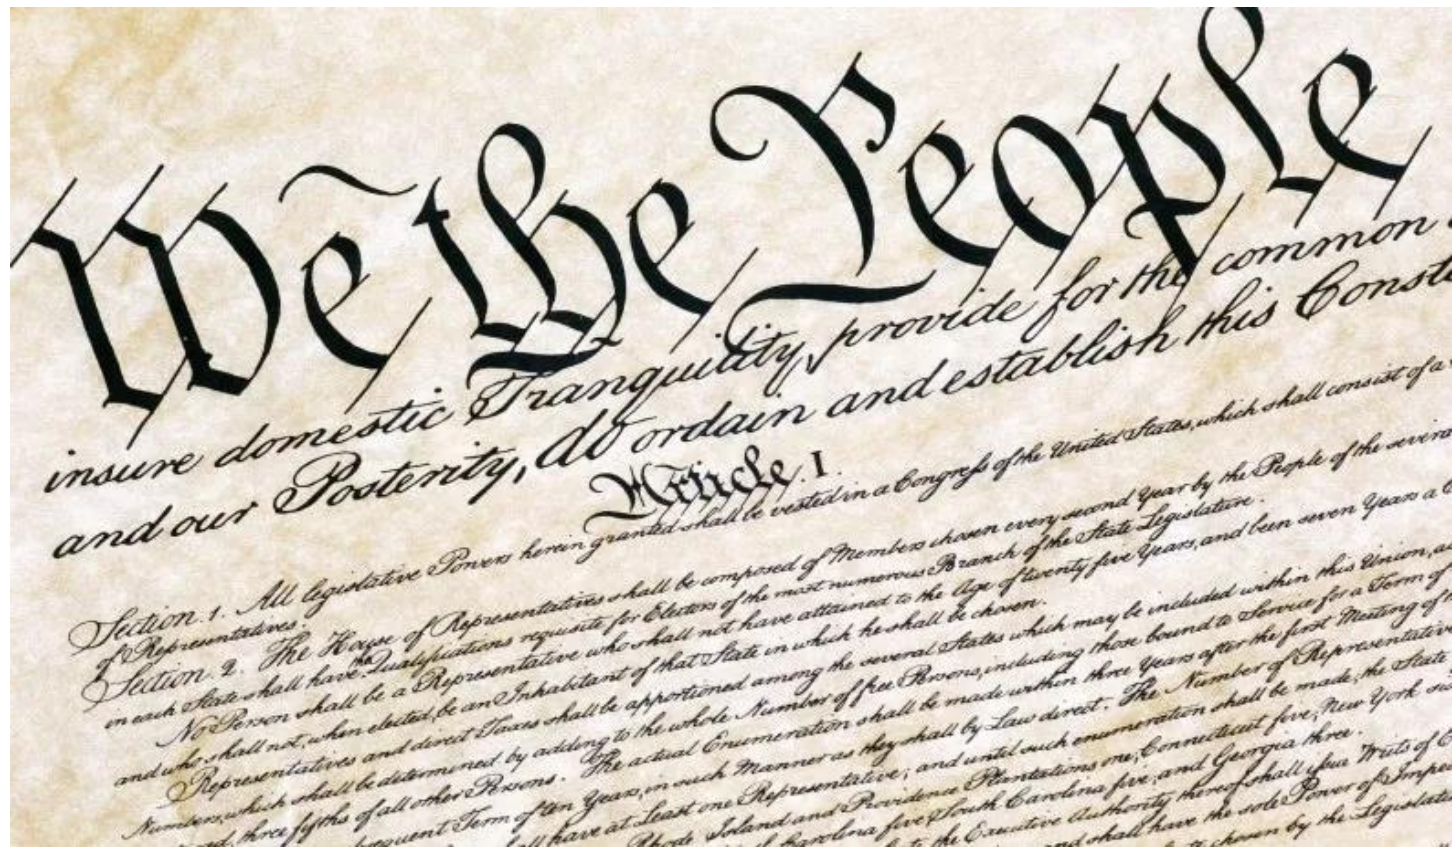 We the People
insure domestic Tranquility, provide for the common
and our Posterity, do ordain and establish this Const
Article. I.
Section. 1. All legislative Powers herein granted shall be vested in a Congress of the United States, which shall consist of a
of Representatives.
Section. 2. The House of Representatives shall be composed of Members chosen every second Year by the People of the severa
in each State shall have the Qualifications requisite for Electors of the most numerous Branch of the State Legislature.
No Person shall be a Representative who shall not have attained to the Age of twenty five Years, and been seven Years a C
and who shall not, when elected, be an Inhabitant of that State in which he shall be chosen.
Representatives and direct Taxes shall be apportioned among the several States which may be included within this Union, a
Numbers, which shall be determined by adding to the whole Number of free Persons, including those bound to Service for a Term of
three fifths of all other Persons. The actual Enumeration shall be made within three Years after the first Meeting of
sequent Term of ten Years, in such Manner as they shall by Law direct. The Number of Representative
all have at Least one Representative; and until such enumeration shall be made, the State
Rhode Island and Providence Plantations one, Connecticut five, New York six
Carolina five, South Carolina five, and Georgia three.
the Executive Authority thereof shall issue Writs of
and shall have the sole Power of Impe
chosen by the Legislat